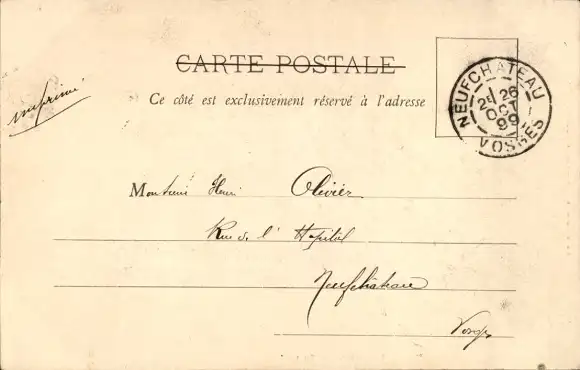 CARTE POSTALE
Ce côté est exclusivement réservé à l'adresse
imprimé
NEUFCHATEAU
26
OCT
99
VOSGES
Monsieur Henri Olivier
Rue de l'Hopital
Neufchateau
Vosges